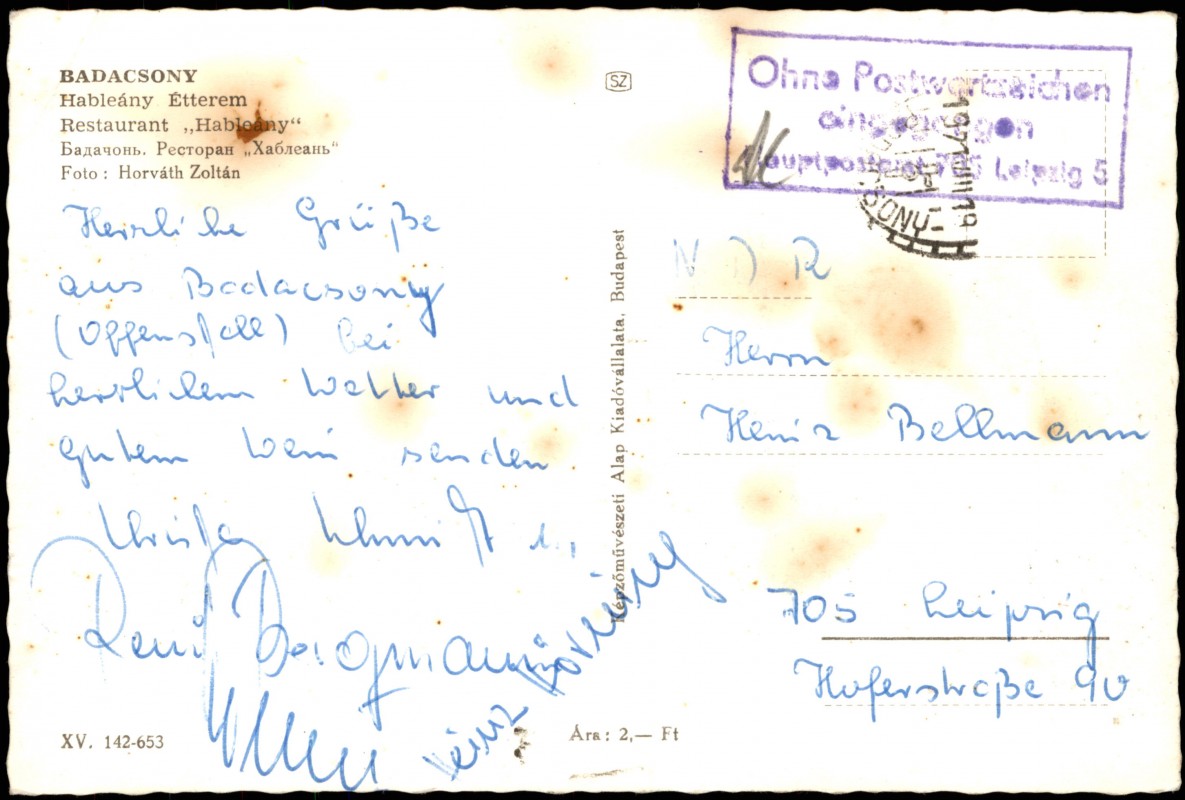 BADACSONY
Hableány Étterem
Restaurant „Hableány“
Бадачонь. Ресторан „Хаблеань“
Foto: Horváth Zoltán
Herzliche Grüße
aus Badacsony
bei
herrlichem Wetter und
gutem Wein senden
XV. 142-653
Képzőművészeti Alap Kiadóvállalata, Budapest
Ára: 2,— Ft
SZ
Ohne Postwertzeichen
eingegangen
Hauptpostamt 705 Leipzig 5
1971 VIII 19
NDR
Herrn
Heinz Bellmann
705 Leipzig
Hoferstraße 90